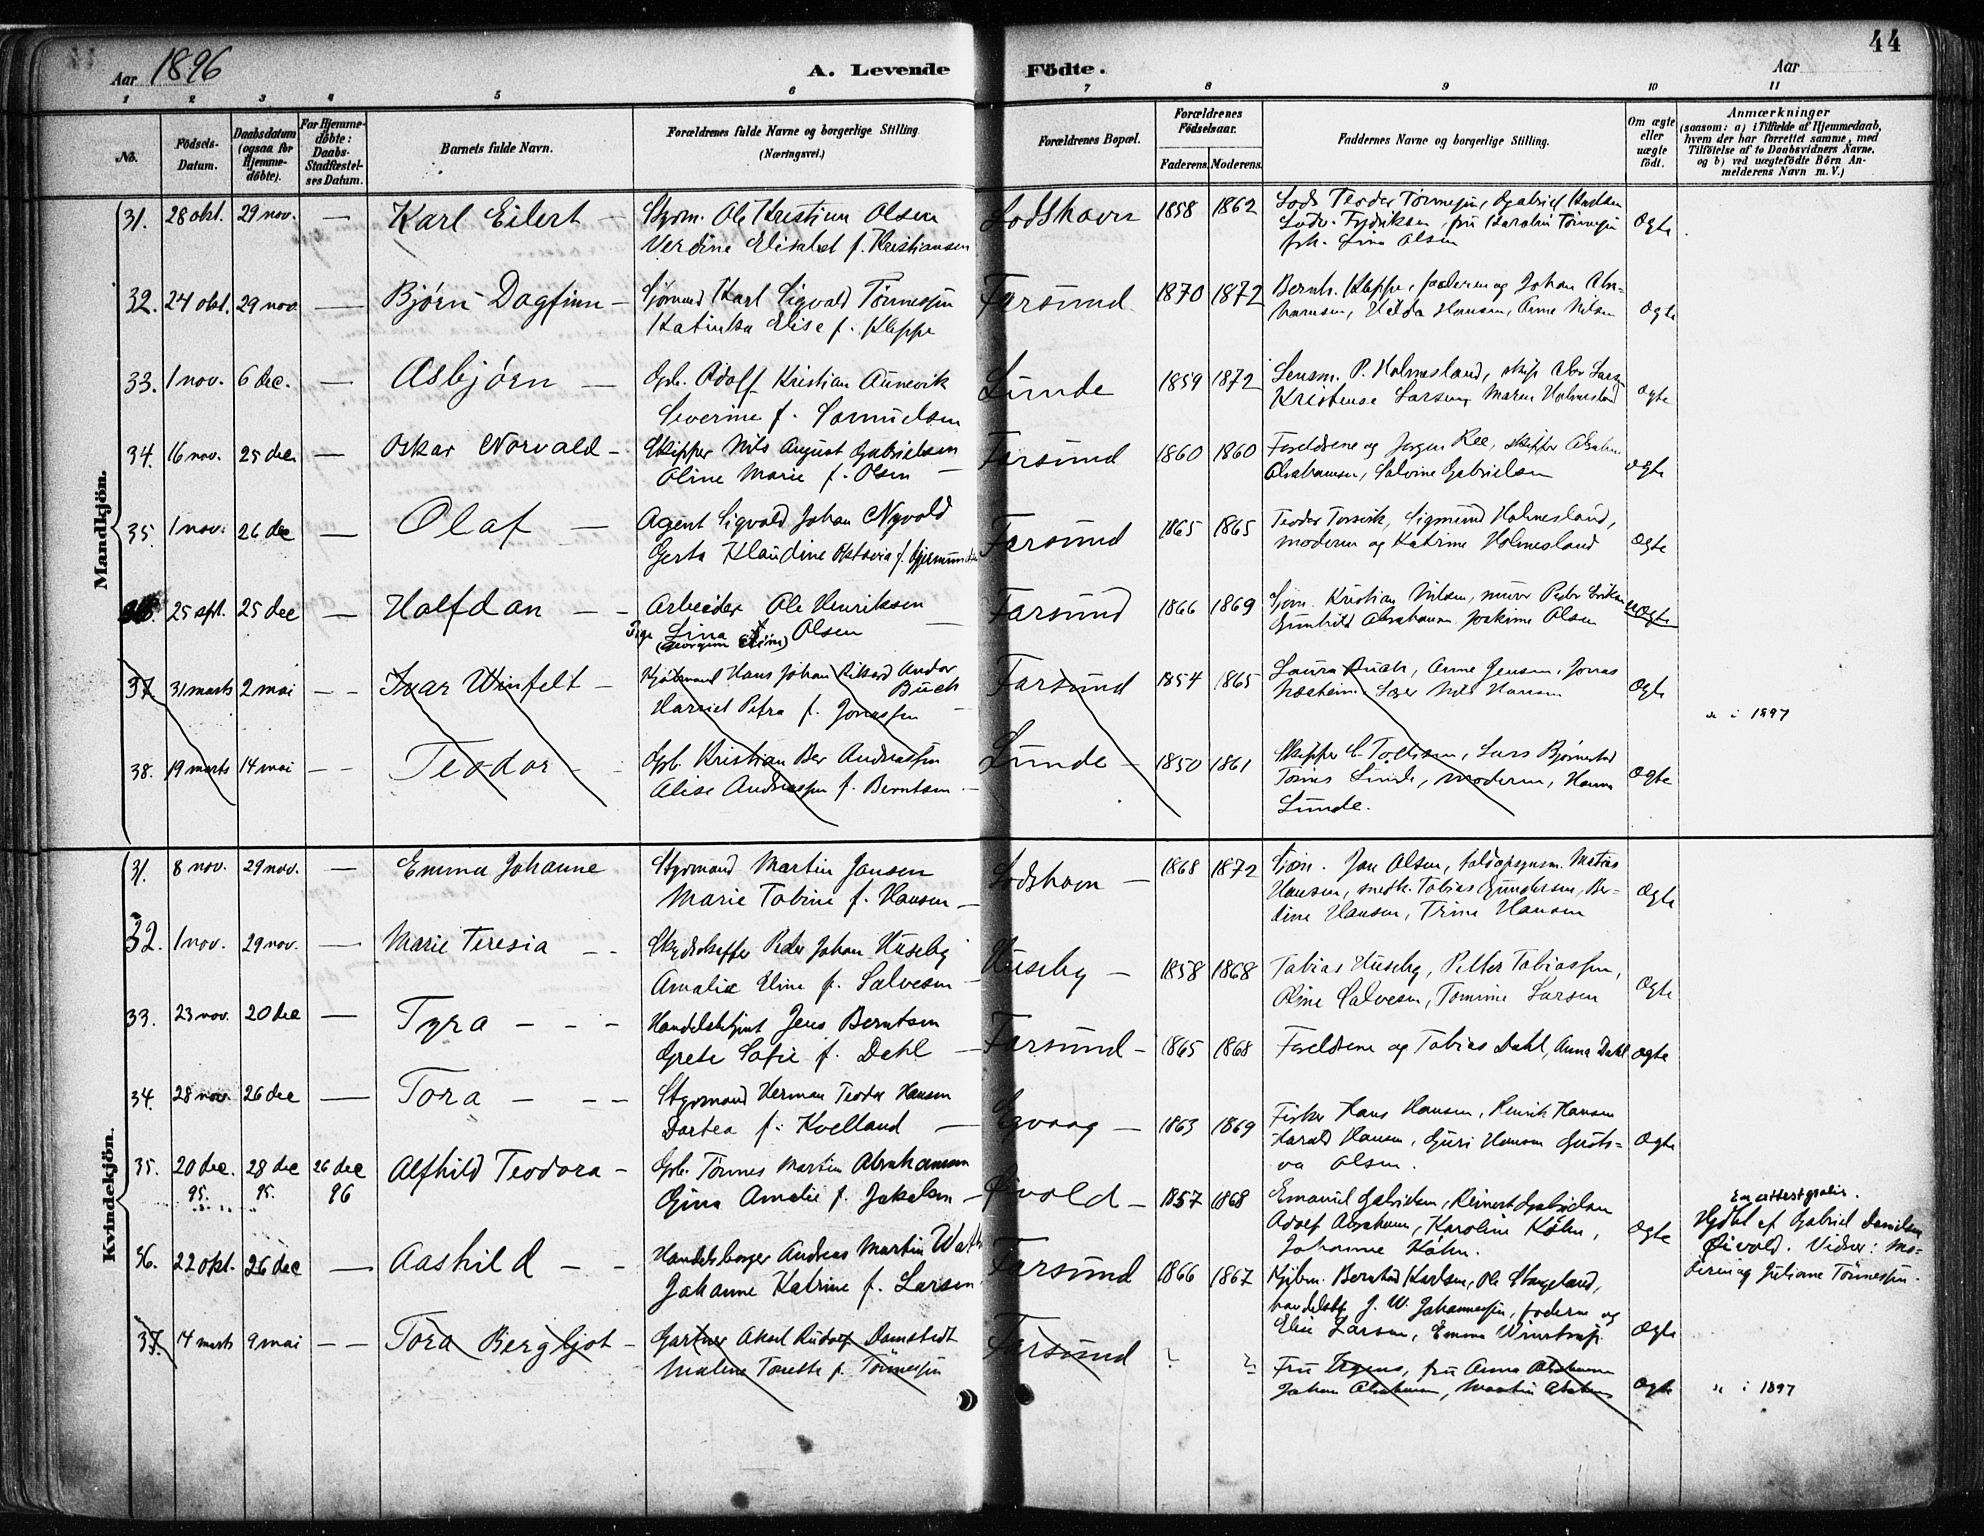 44
Aar 1896
A. Levende Födte.
Aar
1 2 3 4 5 6 7 8 9 10 11
No.
Födsels-Datum.
Daabsdatum (ogsaa for Hjemme-döbte).
For Hjemme-döbte: Daabs-Stadfæstel-ses Datum.
Barnets fulde Navn.
Forældrenes fulde Navne og borgerlige Stilling. (Næringsvei.)
Forældrenes Bopæl.
Forældrenes Födselsaar.
Faderens. Moderens.
Faddernes Navne og borgerlige Stilling.
Om ægte eller uægte födt.
Anmærkninger
(saasom: a) i Tilfælde af Hjemmedaab,
hvem der har forrettet samme, med
Tilföielse af to Daabsvidners Navne,
og b) ved uægtefödte Börn An-
melderens Navn m. V.)
Mandkjön.
31. 28 okt. 29 nov. — Karl Eilert — Styrm. Ole Kristian Olsen Lodshavn 1858 1862 Lods Teodor Tønnesen, Gabriel
Verdine Elisabet f. Kristiansen fru Karolin Tønnesen Ægte
Lina Olsen
32. 24 okt. 29 nov. — Bjørn Dagfinn — Sjømand Karl Sigvald Tønnessen Farsund 1870 1872 Bernh. Kleppe, faderen og Johan Abra-
Katinka Elise f. Kleppe hamsen, Hilda Hansen, Anne Nilsen Ægte
33. 1 nov. 6 dec. — Asbjørn — Gbr. Adolf Kristian Aunevik Lunde 1859 1872 Lensm. P. Holmesland,
Severine f. Samuelsen Kristense Larsen, Maren Holmesland Ægte
34. 16 nov. 25 dec — Oskar Norvald — Skipper Nils August Gabrielsen Farsund 1860 1860 Foreldrene og Jørgen Ree, skipper
Oline Marie f. Olsen — Abrahamsen, Salvine Gabrielsen Ægte
35. 1 nov. 26 dec — Olaf — Agent Sigvald Johan Nyvold Farsund 1865 1865 Teodor Torsvik, Sigmund Holmesland,
Gerta Klaudine Oktavia f. moderen og Katrine Holmesland Ægte
36. 25 spt. 25 dec — Halfdan — Arbeider Ole Henriksen Farsund 1866 1869 Sjøm. Kristian Nilsen, murer Peder
Pige Lina Olsen — Gunhild Abrahamsen Joakime Olsen uægte
37. 31 marts 2 mai — — Ivar Winfelt — Hans Johan Rikard Andor Buch Farsund 1854 1865 Laura Buch, Anne Jensen, Jonas
Harriet Petra f. Jonassen — Nils Hansen Ægte
i 1897
38. 19 marts 14 mai — — Teodor — Gbr. Kristian Ber Andreassen Lunde — 1850 1861 Skipper Lars Bjørnestad
Alise Andreassen f. Berntsen — Tønnes Lunde, moderen, Hanna Ægte
Lunde.
Kvindekjön.
31. 8 nov. 29 nov. — Emma Johanne Styrmand Martin Jansen Lodshavn — 1868 1872 Jan Olsen, Matias
Marie Tobine f. Hansen — Hansen, smedk. Tobias Gundersen, Ber-
dine Hansen, Trine Hansen Ægte
32. 1 nov. 29 nov. — Marie Teresia — — Peder Johan Huseby Huseby — 1858 1868 Tobias Huseby, Petter Tobiassen,
Amalie Eline f. Salvesen — Oline Salvesen, Tomine Larsen Ægte
33. 23 nov. 20 dec — Tyra — — — Handelsbetjent Jens Berntsen Farsund — 1865 1868 Foreldrene og Tobias Dahl, Anna Dahl Ægte
Grete Sofie f. Dahl —
34. 28 nov. 26 dec — Tora — — — Styrmand Herman Teodor Hansen Egvaag — 1863 1869 Fisker Hans Hansen, Henrik Hansen
Dortea f. Kvelland — Harald Hansen, Guri Hansen Gusta-
va Olsen. Ægte
35. 20 dec. 95. 28 dec 95. 26 dec 96 Alfhild Teodora — Gbr. Tønnes Martin Abrahamsen Øivold — 1857 1868 Emanuel Gabrielsen, Reinert Gabrielsen
Gina Amalie f. Jakobsen — Adolf Abrahamsen, Karoline Köhn,
Johanne Köhn. Ægte
En attest gratis.
Hjdbt af Gabriel Danielsen
Øivold. Vidner: Mo-
deren og Juliane Tønnessen.
36. 22 okt. 26 dec — Aashild — — Handelsborger Andreas Martin Farsund 1866 1867 Kjøbm. Bernhard Karlsen, Ole Skageland,
Johanne Katrine f. Larsen J. W. Johannessen, faderen og
Elise Larsen, Emma Winstrup. Ægte
37. 14 marts 9 mai — — Tora Bergljot — Gartner Aksel Rudolf Damstedt Farsund ? ? Fru Irgens, fru Anna Abrahamsen
Maline Tonette f. Tönnessen Johan Abrahamsen, Martin Ægte
i 1897